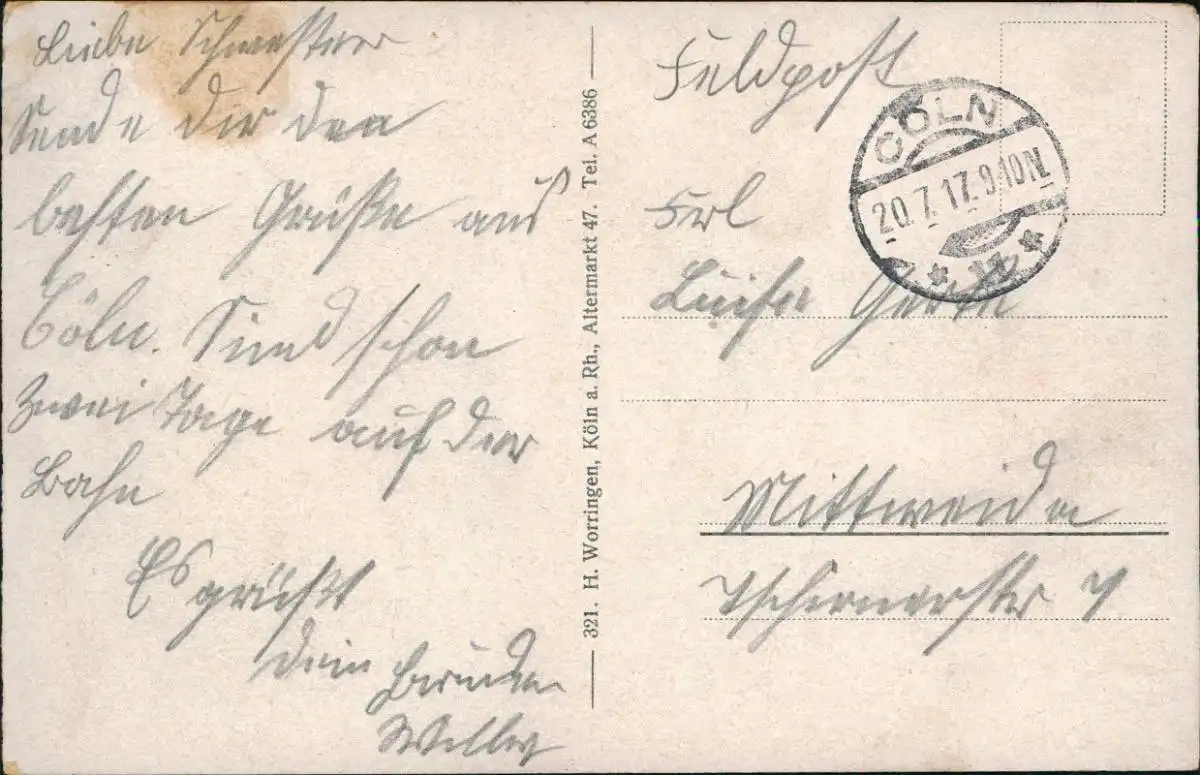 Liebe Schwester
Sende dir den
besten Grüße aus
Cöln. Sind schon
zwei Tage auf der
Bahn
Es grüßt
dein Bruder
Willy
321. H. Worringen, Köln a. Rh., Altermarkt 47. Tel. A 6386
Feldpost
CÖLN
20.7.17.9-10N.
Frl
Luise
Mittweida
Tschirnerstr